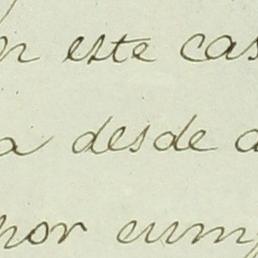 en este cas
a desde a
por cump